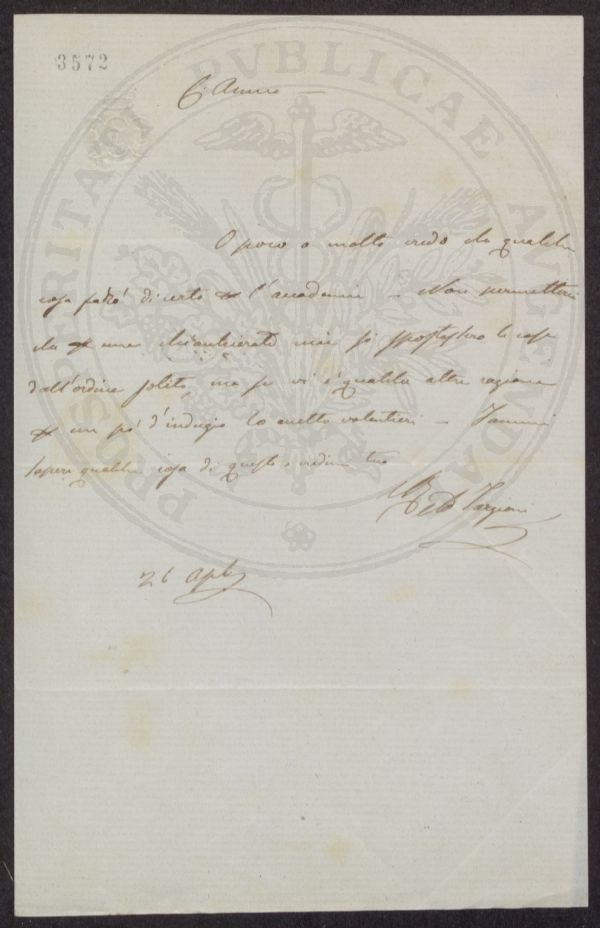 3572
C. Amico —
O poco o molto credo che qualche
cosa farò di certo per l'accademia — Non permetterei
che per una mai si spostassero le cose
dall'ordine solito, ma se vi è qualche altra ragione
per un po' d'indugio lo accetto volentieri — Fammi
sapere qualche cosa di questo e credimi tuo
Targioni
26
PROSPERITATI PVBLICAE AVGENDAE